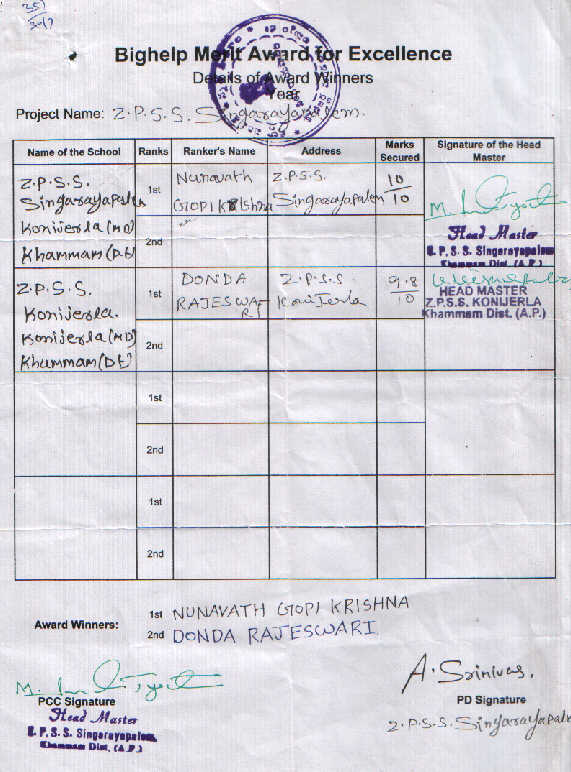 351
Bighelp Merit Award for Excellence
Details of Award Winners
Year
Project Name: Z.P.S.S. Singarayapalem.
Name of the School Ranks Ranker's Name Address Marks Secured Signature of the Head Master
Z.P.S.S.
Singarayapalem
Konijerla (MD)
Khammam (Dt)
1st Nunavath Gopi Krishna Z.P.S.S. Singarayapalem 10/10
Head Master
U. P. S. S. Singarayapalem
Khammam Dist. (A.P.)
2nd
Z.P.S.S.
Konijerla.
Konijerla (MD)
Khammam (Dt)
1st DONDA RAJESWARI Z.P.S.S Konijerla 9.8/10
HEAD MASTER
Z.P.S.S. KONIJERLA
Khammam Dist. (A.P.)
2nd
1st
2nd
1st
2nd
Award Winners:
1st NUNAVATH GOPI KRISHNA
2nd DONDA RAJESWARI
A. Srinivas.
PCC Signature
PD Signature
Head Master
U. P. S. S. Singarayapalem,
Khammam Dist. (A.P.)
Z.P.S.S. Singarayapalem